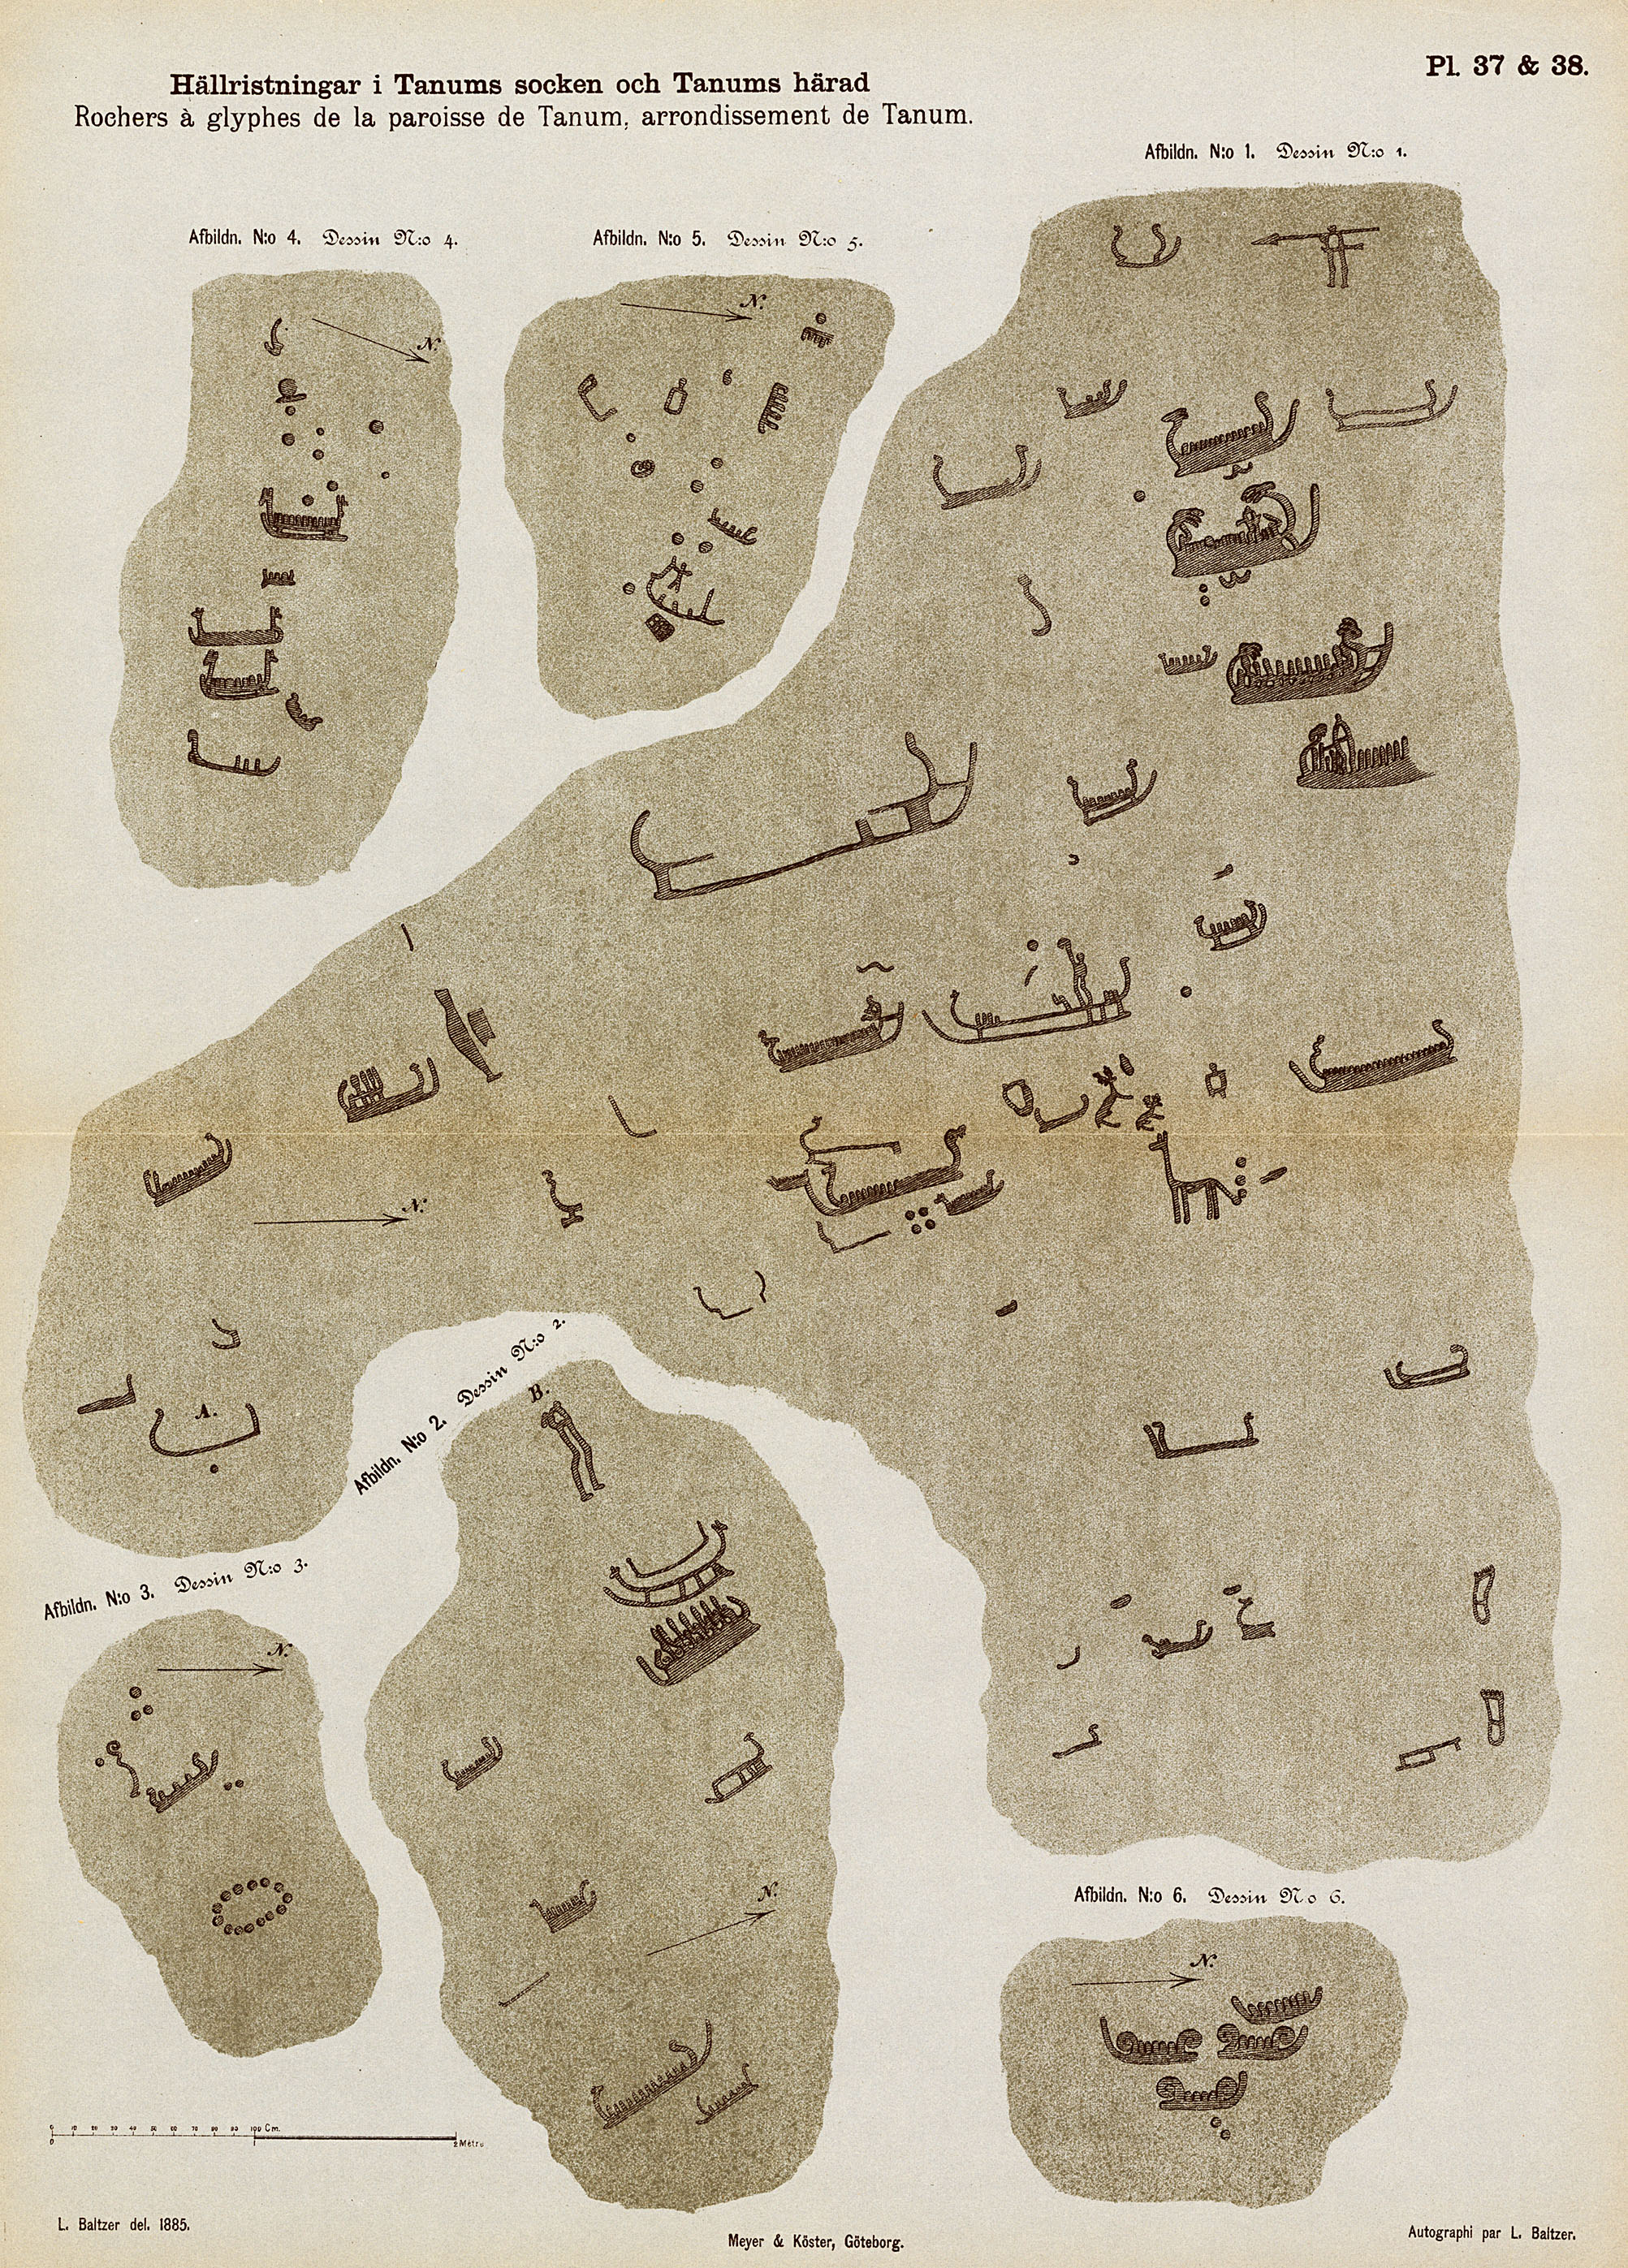 Pl. 37 & 38.
Hällristningar i Tanums socken och Tanums härad
Rochers à glyphes de la paroisse de Tanum, arrondissement de Tanum.
Afbildn. N:o 1. Dessin N:o 1.
Afbildn. N:o 4. Dessin N:o 4.
Afbildn. N:o 5. Dessin N:o 5.
N.
N.
N.
A.
Afbildn. N:o 2. Dessin N:o 2.
B.
Afbildn. N:o 3. Dessin N:o 3.
N.
N.
Afbildn. N:o 6. Dessin N:o 6.
N.
0 10 20 30 40 50 60 70 80 90 100 Cm.
0 1 2 Mètre
L. Baltzer del. 1885.
Meyer & Köster, Göteborg.
Autographi par L. Baltzer.